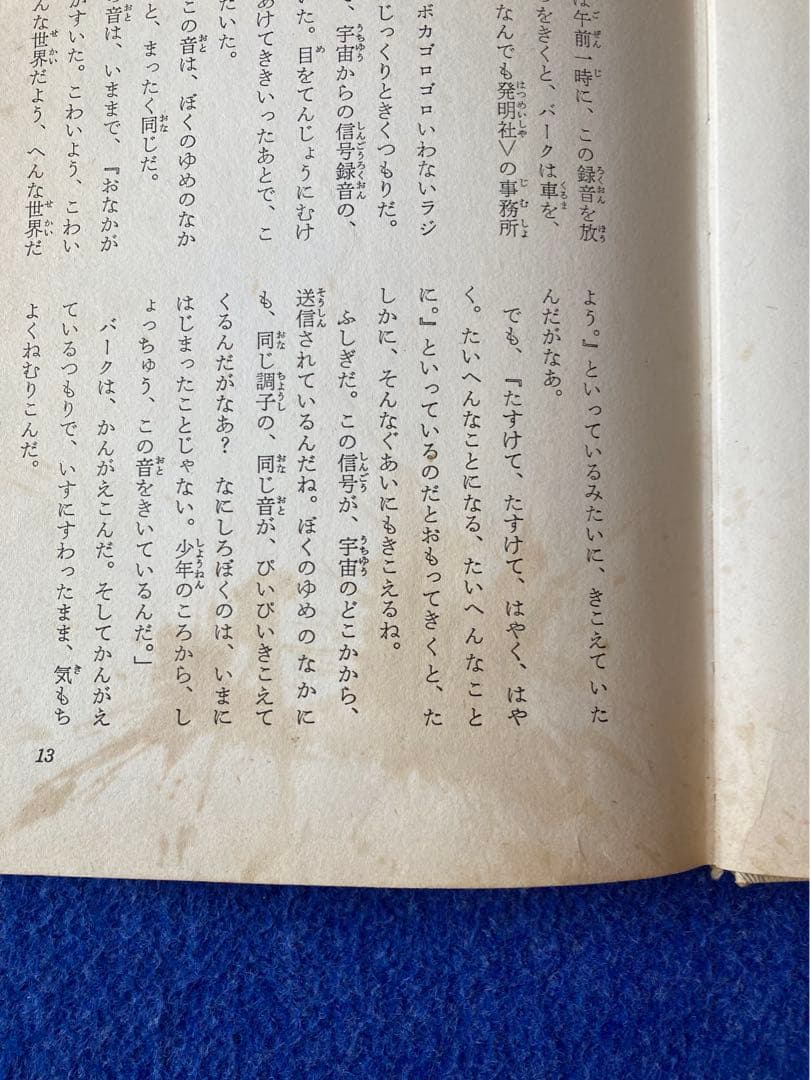 は午前一時に、この録音を放
をきくと、バークは車を、
なんでも発明社＞の事務所
ボカゴロゴロいわないラジ
じっくりときくつもりだ。
、宇宙からの信号録音の、
いた。目をてんじょうにむけ
あけてききいったあとで、こ
たいた。
この音は、ぼくのゆめのなか
と、まったく同じだ。
音は、いままで、『おなかが
がすいた。こわいよう、こわい
んな世界だよう、へんな世界だ
よう。』といっているみたいに、きこえていた
んだがなあ。
でも、『たすけて、たすけて、はやく、はや
く。たいへんなことになる、たいへんなこと
に。』といっているのだとおもってきくと、た
しかに、そんなぐあいにもきこえるね。
ふしぎだ。この信号が、宇宙のどこかから、
送信されているんだね。ぼくのゆめのなかに
も、同じ調子の、同じ音が、ぴいぴいきこえて
くるんだがなあ？　なにしろぼくのは、いまに
はじまったことじゃない。少年のころから、し
ょっちゅう、この音をきいているんだ。」
バークは、かんがえこんだ。そしてかんがえ
ているつもりで、いすにすわったまま、気もち
よくねむりこんだ。
13